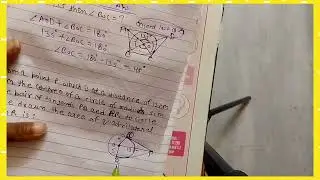 is then ∠BOC = ?
∠AOD + ∠BOC = 180°
135° + ∠BOC = 180°
∠BOC = 180° - 135° = 45°
from a point P, which is at a distance of 13cm
from the centre O of a circle of radius 5cm
the pair of tangents PQ and PR to circle
are drawn the area of quadrilateral